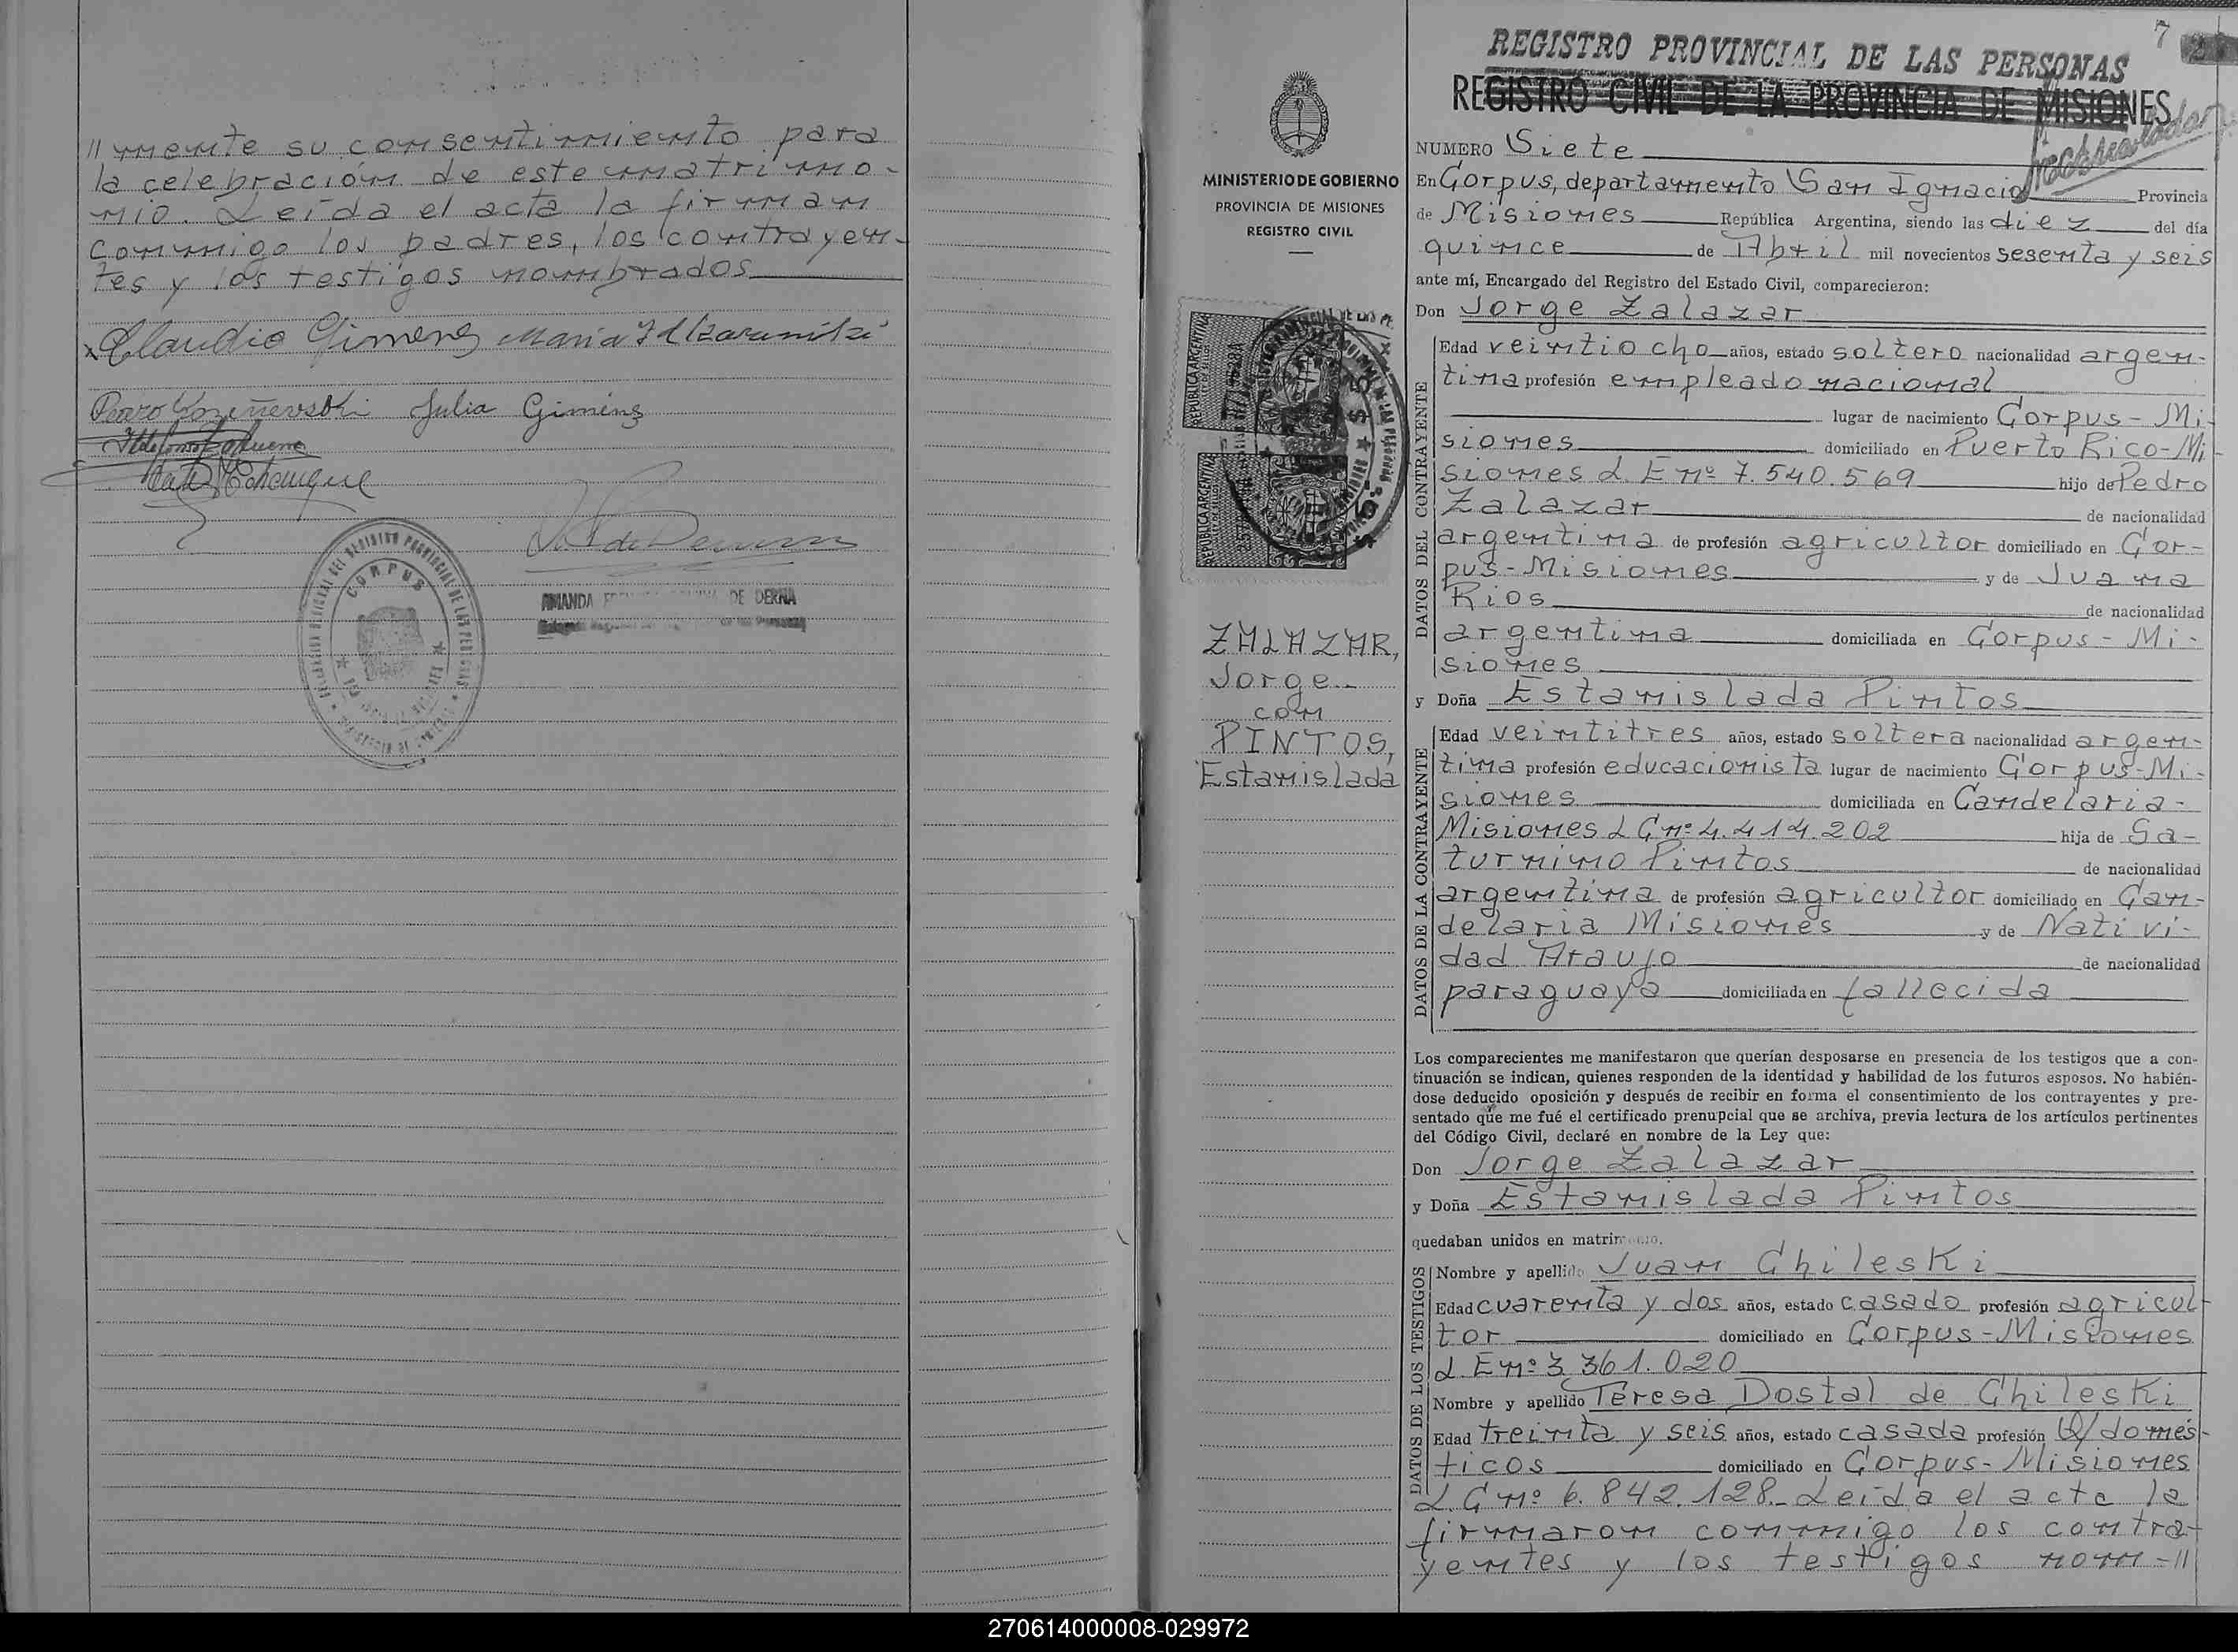 // mente su consentimiento para
la celebración de este matrimo-
nio. Leída el acta la firman
conmigo los padres, los contrayen-
tes y los testigos nombrados
Claudio Gimenez María I
Pedro Julia Giménez
CORPUS
AMANDA DE DERNA
7
REGISTRO PROVINCIAL DE LAS PERSONAS
REGISTRO CIVIL DE LA PROVINCIA DE MISIONES
MINISTERIO DE GOBIERNO
PROVINCIA DE MISIONES
REGISTRO CIVIL
REPUBLICA ARGENTINA
REPUBLICA ARGENTINA
ZALAZAR,
Jorge
con
PINTOS,
Estanislada
NUMERO Siete
En Corpus, departamento San Ignacio Provincia
de Misiones República Argentina, siendo las diez del día
quince de Abril mil novecientos sesenta y seis
ante mí, Encargado del Registro del Estado Civil, comparecieron:
Don Jorge Zalazar
DATOS DEL CONTRAYENTE
Edad veintiocho años, estado soltero nacionalidad argen-
tina profesión empleado nacional
lugar de nacimiento Corpus - Mi-
siones domiciliado en Puerto Rico - Mi-
siones L. E nº 7.540.569 hijo de Pedro
Zalazar de nacionalidad
argentina de profesión agricultor domiciliado en Cor-
pus - Misiones y de Juana
Rios de nacionalidad
argentina domiciliada en Corpus - Mi-
siones
y Doña Estanislada Pintos
DATOS DE LA CONTRAYENTE
Edad veintitres años, estado soltera nacionalidad argen-
tina profesión educacionista lugar de nacimiento Corpus - Mi-
siones domiciliada en Candelaria -
Misiones L C nº 4.414.202 hija de Sa-
turnino Pintos de nacionalidad
argentina de profesión agricultor domiciliado en Can-
delaria Misiones y de Nativi-
dad Araujo de nacionalidad
paraguaya domiciliada en fallecida
Los comparecientes me manifestaron que querían desposarse en presencia de los testigos que a con-
tinuación se indican, quienes responden de la identidad y habilidad de los futuros esposos. No habién-
dose deducido oposición y después de recibir en forma el consentimiento de los contrayentes y pre-
sentado que me fué el certificado prenupcial que se archiva, previa lectura de los artículos pertinentes
del Código Civil, declaré en nombre de la Ley que:
Don Jorge Zalazar
y Doña Estanislada Pintos
quedaban unidos en matrimonio.
DATOS DE LOS TESTIGOS
Nombre y apellido Juan Chileski
Edad cuarenta y dos años, estado casado profesión agricul-
tor domiciliado en Corpus - Misiones
L. E nº 3 361.020
Nombre y apellido Teresa Dostal de Chileski
Edad treinta y seis años, estado casada profesión Q/domés-
ticos domiciliado en Corpus - Misiones
L. C nº 6.842.128.- Leída el acta la
firmaron conmigo los contra-
yentes y los testigos nom - //
270614000008-029972